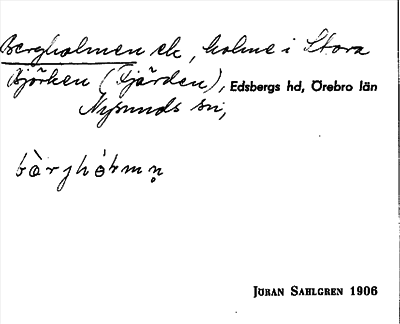 Bergholmen ek, holme i Stora
Björken (Fjärden), Edsbergs hd, Örebro län
Nysunds sn,
bàrjhólmn̥
JÖRAN SAHLGREN 1906